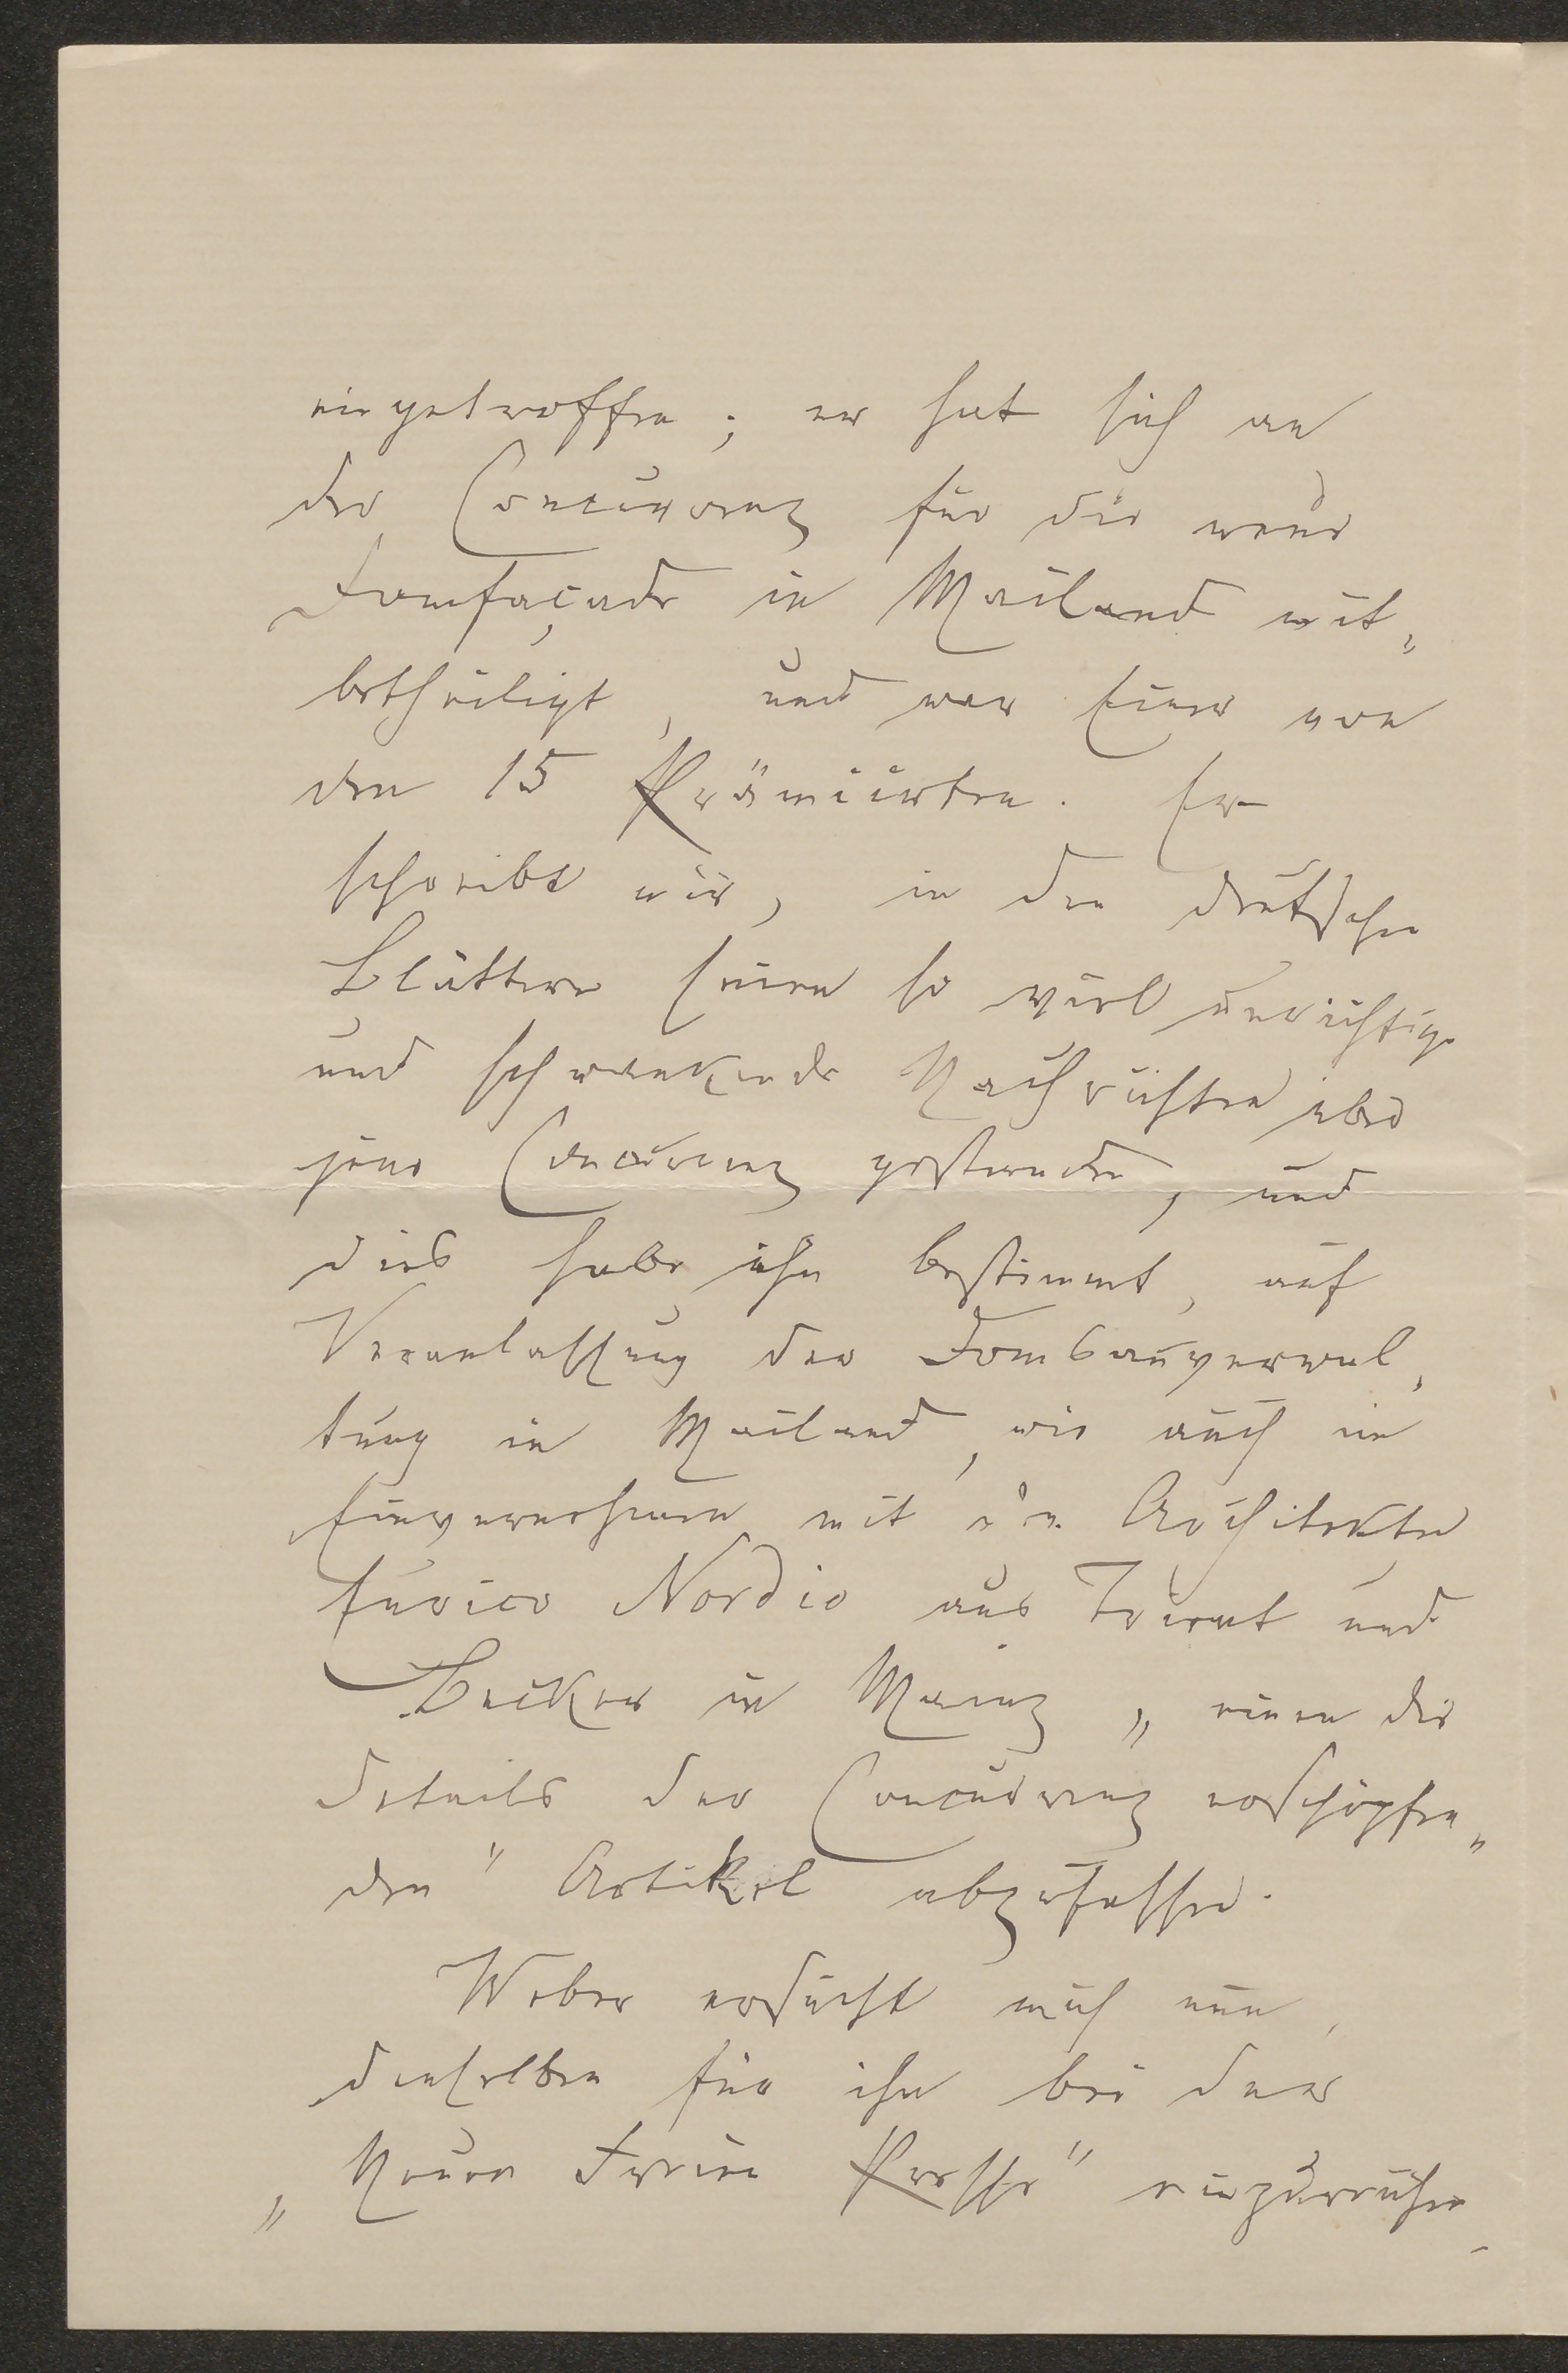 eingetroffen; er hat sich an
der Concurrenz für die neue
Domfaçade in Mailand mit„
betheiligt, und war Einer von
den 15 Prämiirten. Er
schreibt mir, in den deutschen
Blättern seien so viel unrichtige
und schwankende Nachrichten über
jene Concurrenz gestanden, und
dies habe ihn bestimmt, auf
Veranlassung der Dombauverwal„
tung in Mailand, wie auch im
Einvernehmen mit den Architekten
Enrico Nordio aus Triest und
Becker in Mainz „einen die
Details der Concurrenz erschöpfen„
den" Artikel abzufassen.
Weber ersucht mich nun,
denselben für ihn bei der
„Neuen Freien Presse" einzureichen